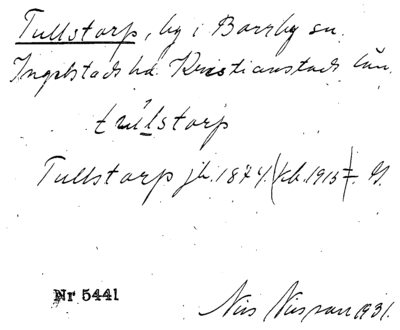 Tullstorp, by i Borrby sn.
Ingelstads hd. Kristianstads län.
tullstorp
Tullstorp jb. 1874. (kb. 1915 =). G.
Nr 5441
Nils Nilsson 1931.